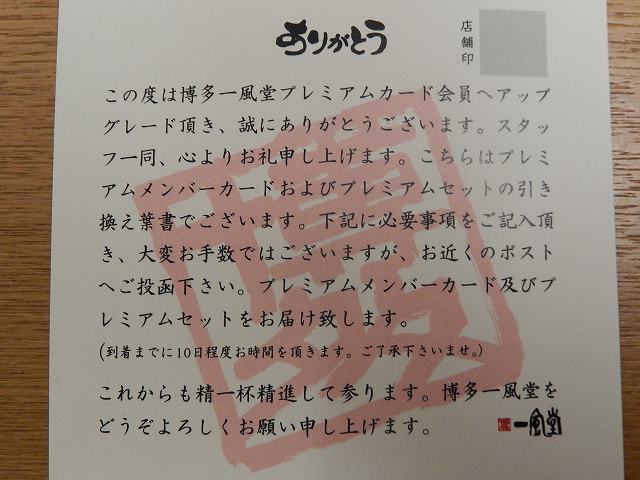 ありがとう
店舗印
この度は博多一風堂プレミアムカード会員へアップ
グレード頂き、誠にありがとうございます。スタッ
フ一同、心よりお礼申し上げます。こちらはプレミ
アムメンバーカードおよびプレミアムセットの引き
換え葉書でございます。下記に必要事項をご記入頂
き、大変お手数ではございますが、お近くのポスト
へご投函下さい。プレミアムメンバーカード及びプ
レミアムセットをお届け致します。
(到着までに10日程度お時間を頂きます。ご了承下さいませ。)
これからも精一杯精進して参ります。博多一風堂を
どうぞよろしくお願い申し上げます。
一風堂